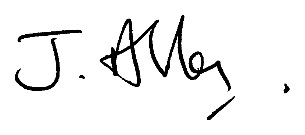 J. Allen